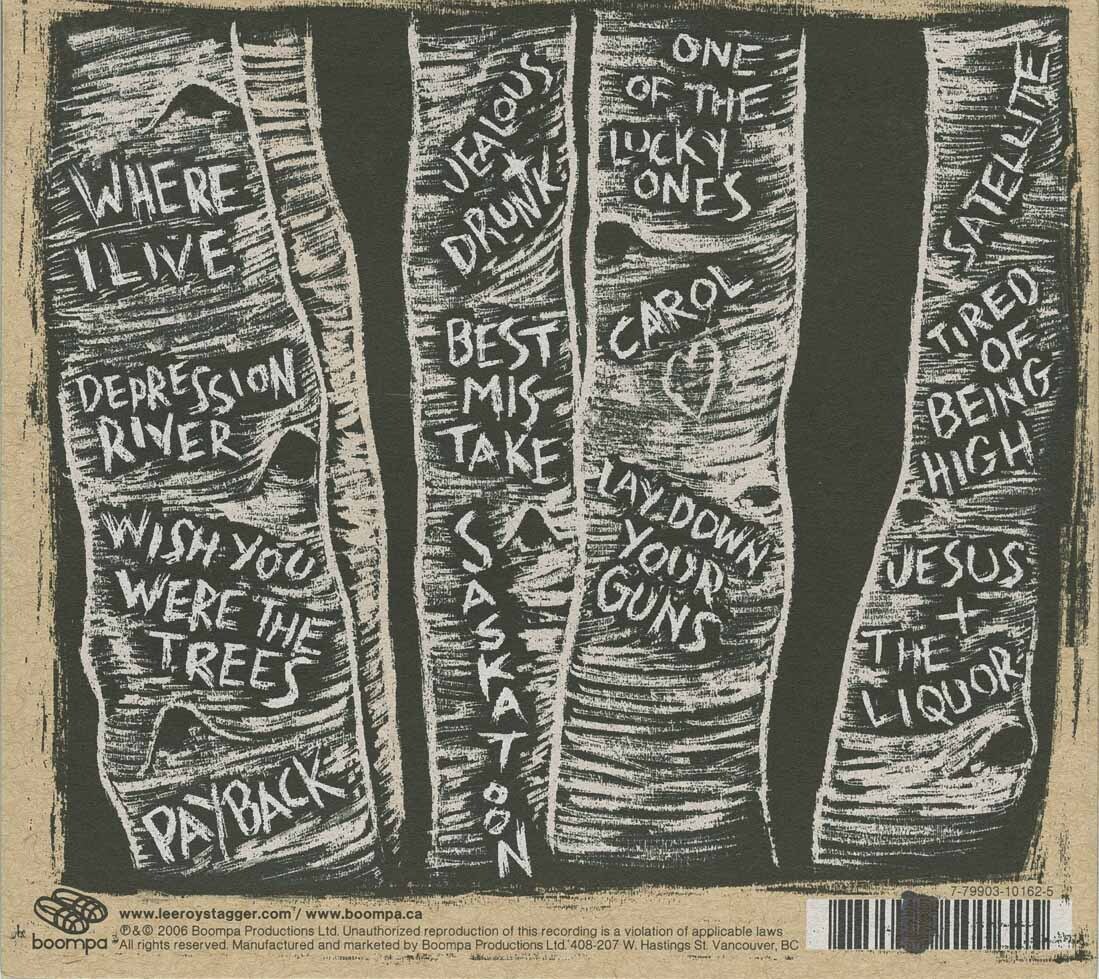 WHERE
I LIVE
DEPRESSION
RIVER
WISH YOU
WERE THE
TREES
PAYBACK
JEALOUS
+
DRUNK
BEST
MIS-
TAKE
SASKATOON
ONE
OF THE
LUCKY
ONES
CAROL
LAY DOWN
YOUR
GUNS
SATELLITE
TIRED
OF
BEING
HIGH
JESUS
+
THE
LIQUOR
boompa
www.leeroystagger.com / www.boompa.ca
℗&© 2006 Boompa Productions Ltd. Unauthorized reproduction of this recording is a violation of applicable laws
All rights reserved. Manufactured and marketed by Boompa Productions Ltd. 408-207 W. Hastings St. Vancouver, BC
7-79903-10162-5